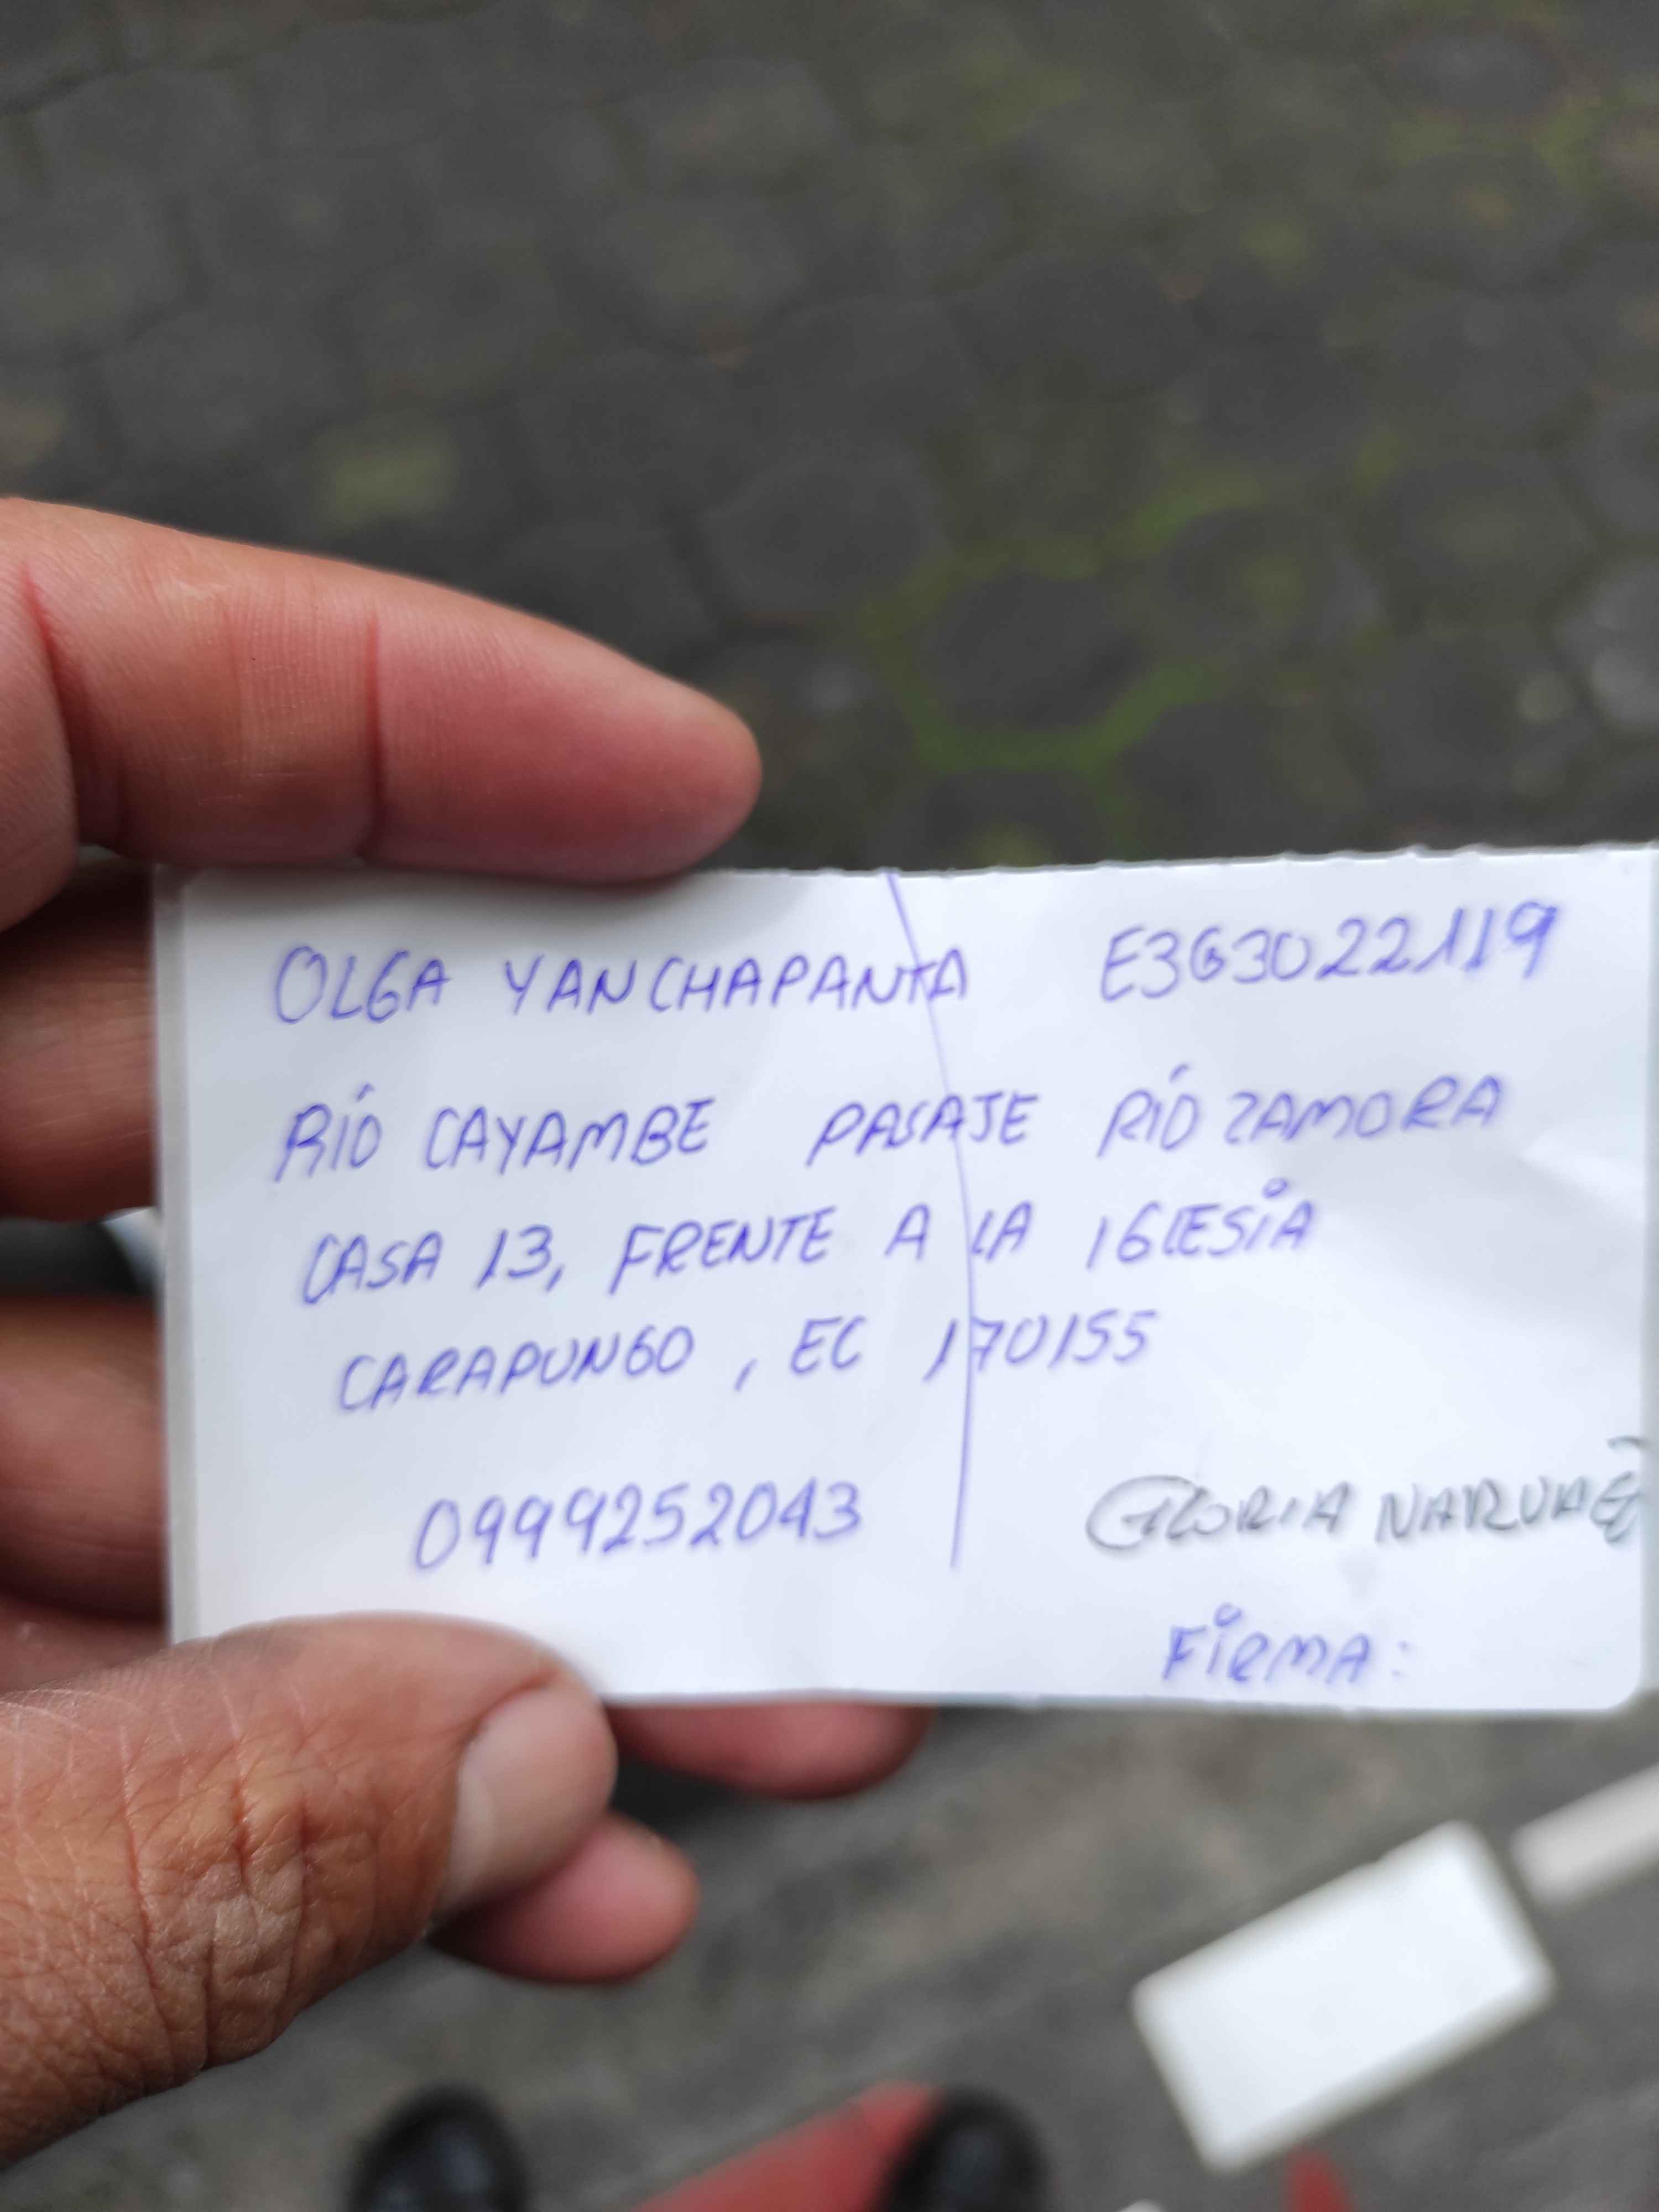 OLGA YANCHAPANTA E3G3022119
RÍO CAYAMBE PASAJE RÍO ZAMORA
CASA 13, FRENTE A LA IGLESIA
CARAPUNGO, EC 170155
0999252043 GLORIA NARVAEZ
FIRMA: